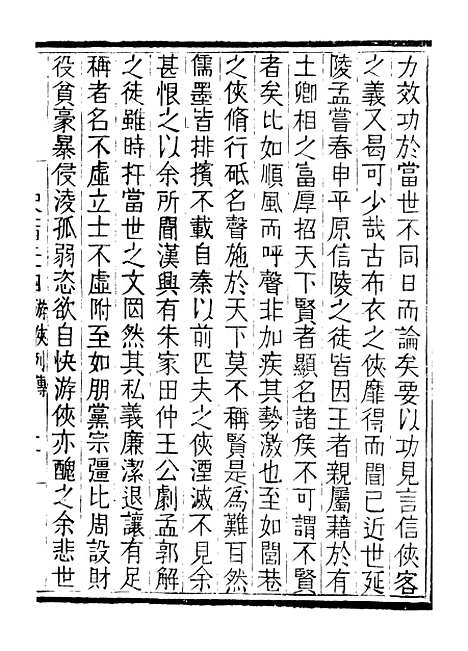 力效功於當世不同日而論矣要以功見言信俠客
之義又曷可少哉古布衣之俠靡得而聞已近世延
陵孟嘗春申平原信陵之徒皆因王者親屬藉於有
土卿相之富厚招天下賢者顯名諸侯不可謂不賢
者矣比如順風而呼聲非加疾其勢激也至如閭巷
之俠脩行砥名聲施於天下莫不稱賢是為難耳然
儒墨皆排擯不載自秦以前匹夫之俠湮滅不見余
甚恨之以余所聞漢興有朱家田仲王公劇孟郭解
之徒雖時扞當世之文罔然其私義廉潔退讓有足
稱者名不虛立士不虛附至如朋黨宗彊比周設財
役貧豪暴侵淩孤弱恣欲自快游俠亦醜之余悲世
游俠列傳